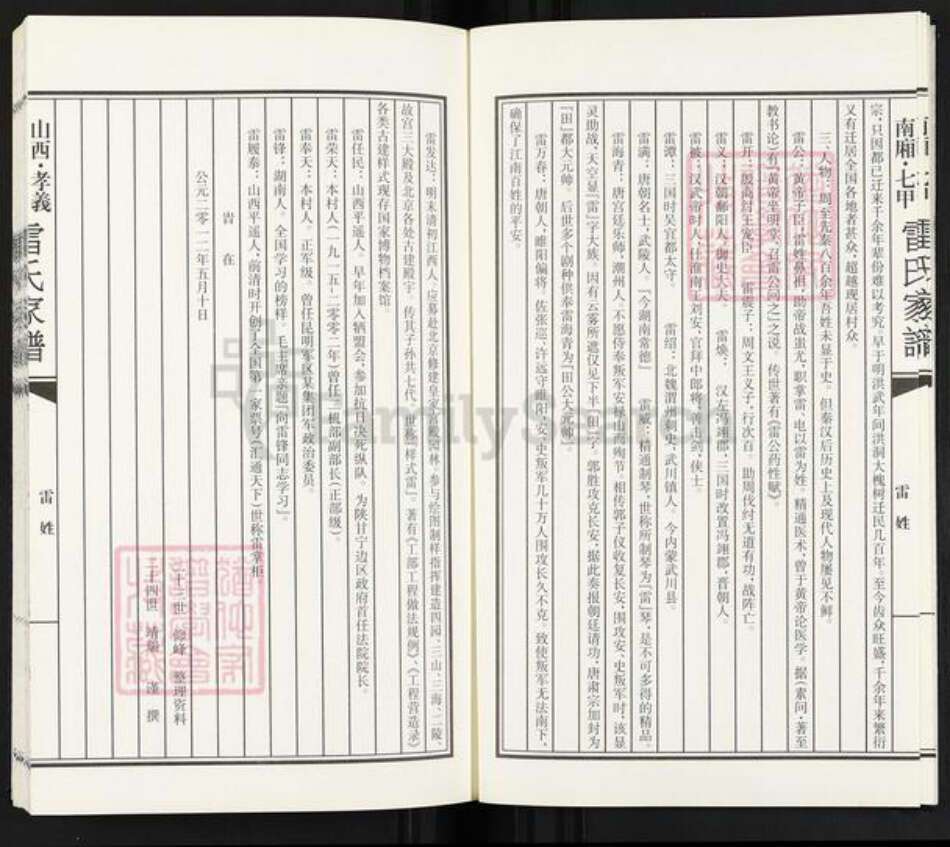 南厢·七甲 雷氏家谱
雷姓
宗,只因都已迁来千余年辈份难以考究,早于明洪武年间洪洞大槐树迁民几百年。至今齿众旺盛,千余年来繁衍
又有迁居全国各地者甚众,超越现居村众。
三、人物:周全先秦八百余年吾姓未显于史。但秦汉后历史上及现代人物屡见不鲜。
雷公:黄帝子臣,雷姓鼻祖,助帝战蚩尤,职掌雷、电以雷为姓。精通医术,曾于黄帝论医学。据《素问·著至
教书论》有《黄帝坐明堂,召雷公问之》之说。传世著有《雷公药性赋》
雷开:殷商封王宠臣。 雷震子:周文王义子,行次百。助周伐纣无道有功,战阵亡。
雷义:汉朝鄱阳人,御史大夫。 雷焕:汉左冯翊郡,三国时改置冯翊郡,晋朝人。
雷被:汉武帝时人,仕淮南王刘安,官拜中郎将,善击剑,侠士。
雷谭:三国时吴宜都太守。 雷绍:北魏渭州刺史,武川镇人。今内蒙武川县。
雷满:唐朝名士,武陵人。『今湖南常德』 雷威:精通制琴,世称所制琴为『雷』琴,是不可多得的精品。
雷海青:唐宫廷乐师,潮州人。不愿侍奉叛军安禄山而殉节。相传郭子仪收复长安,围攻安、史叛军时,该显
灵助战,天空显『雷』字大族。因有云雾所遮仅见下半『田』字。郭胜攻克长安,据此奏报朝廷请功,唐肃宗加封为
『田』都大元帅。后世多个剧种供奉雷海青为『田公大元帅』。
雷万春:唐朝人,睢阳偏将。佐张巡、许远守睢阳,安、史叛军几十万人围攻长久不克。致使叛军无法南下,
确保了江南百姓的平安。
雷发达:明末清初江西人,应募赴北京修建皇家宫殿园林。参与绘图制样指挥建造四园、三山、三海、二陵、
故宫三大殿及北京各处古建殿宇。传其子孙共七代。世称『样式雷』。著有《工部工程做法规例》、《工程营造录》
各类古建样式现存国家博物档案馆。
雷任民:山西平遥人。早年加入牺盟会,参加抗日决死纵队。为陕甘宁边区政府首任法院院长。
雷荣天:本村人(一九一五~二零零二年)曾任三机部副部长(正部级)。
雷奉天:本村人。正军级。曾任昆明军区某集团军政治委员。
雷锋:湖南人。全国学习的榜样。毛主席亲题『向雷锋同志学习』。
雷履泰:山西平遥人,前清时开创了全国第一家票号(汇通天下)世称雷掌柜
岂 在
公元二零一二年五月十日
二十三世 修峰 整理资料
二十四世 靖编 谨 撰
山西·孝義 雷氏家谱
雷姓
FamilySearch